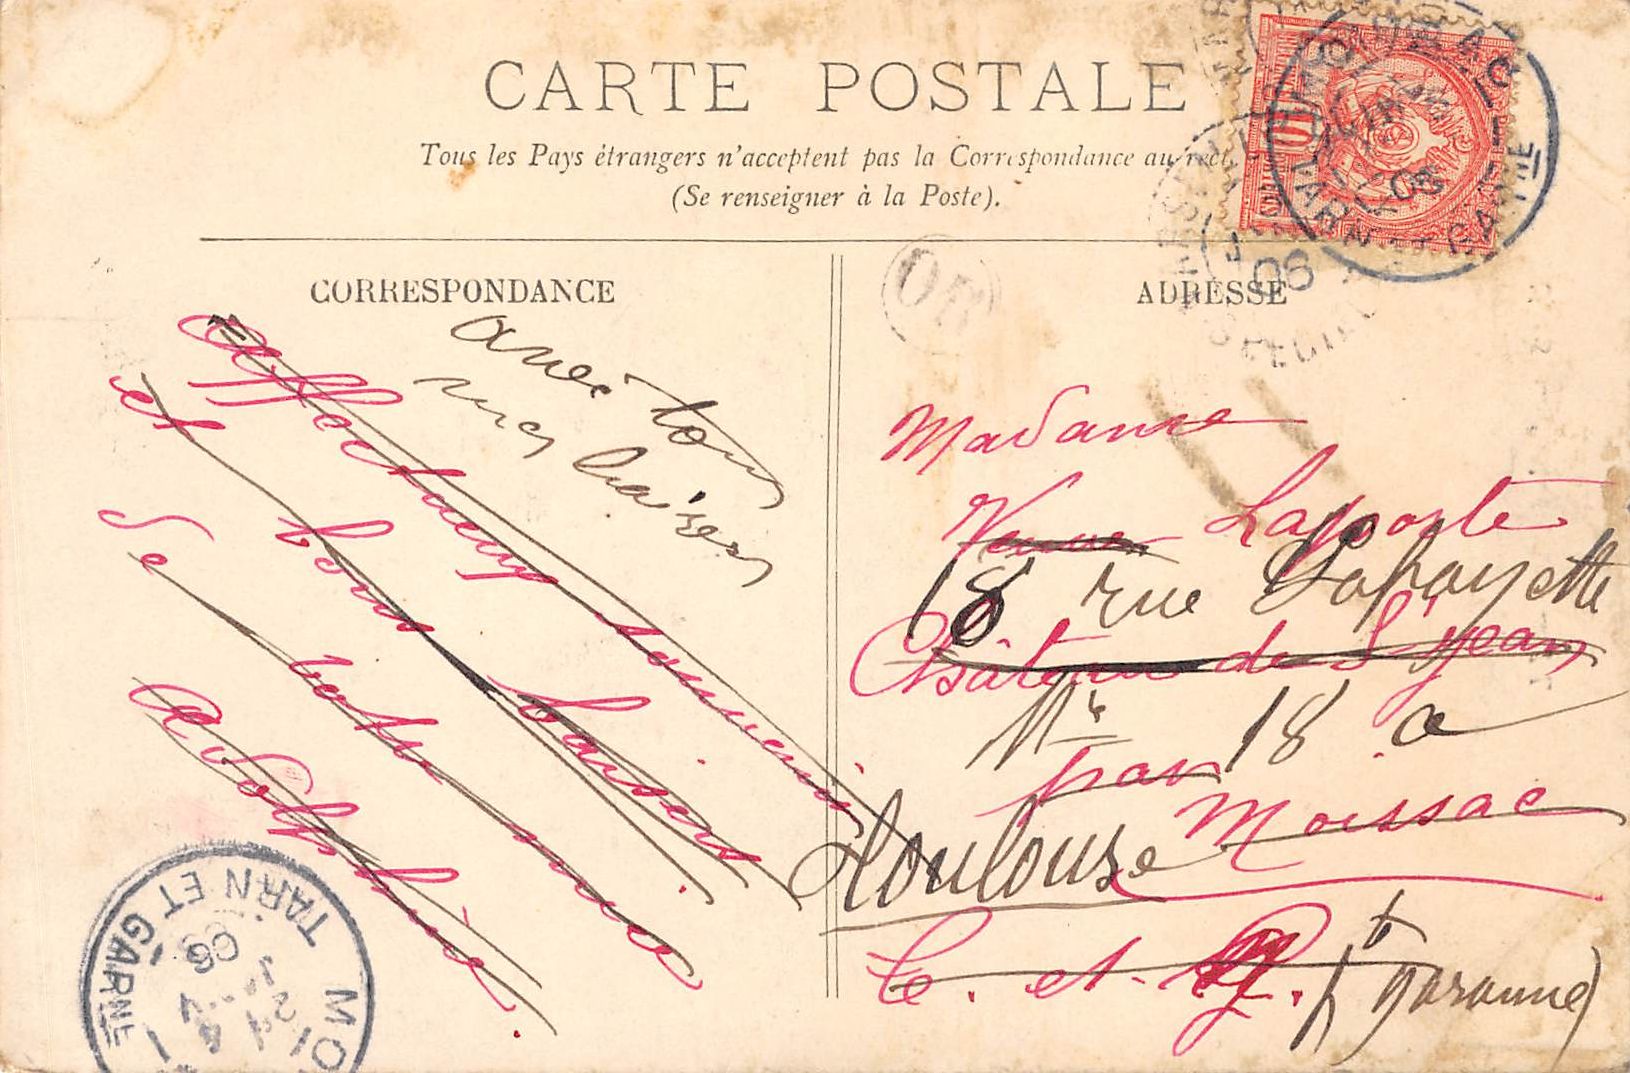 CARTE POSTALE
Tous les Pays étrangers n'acceptent pas la Correspondance au recto
(Se renseigner à la Poste).
CORRESPONDANCE
ADRESSE
Affectueux souvenir
et bons baisers
de votre amie
Adolphine
avec tous
mes baisers
OR
Madame
Veuve Laporte
18 rue Lafayette
Château de St Jean
18 a
par Moissac
Toulouse
T. et G.
Hte garonne)
MOISSAC
TARN ET GARNE
06
10
MOI
TARN ET GARNE
06